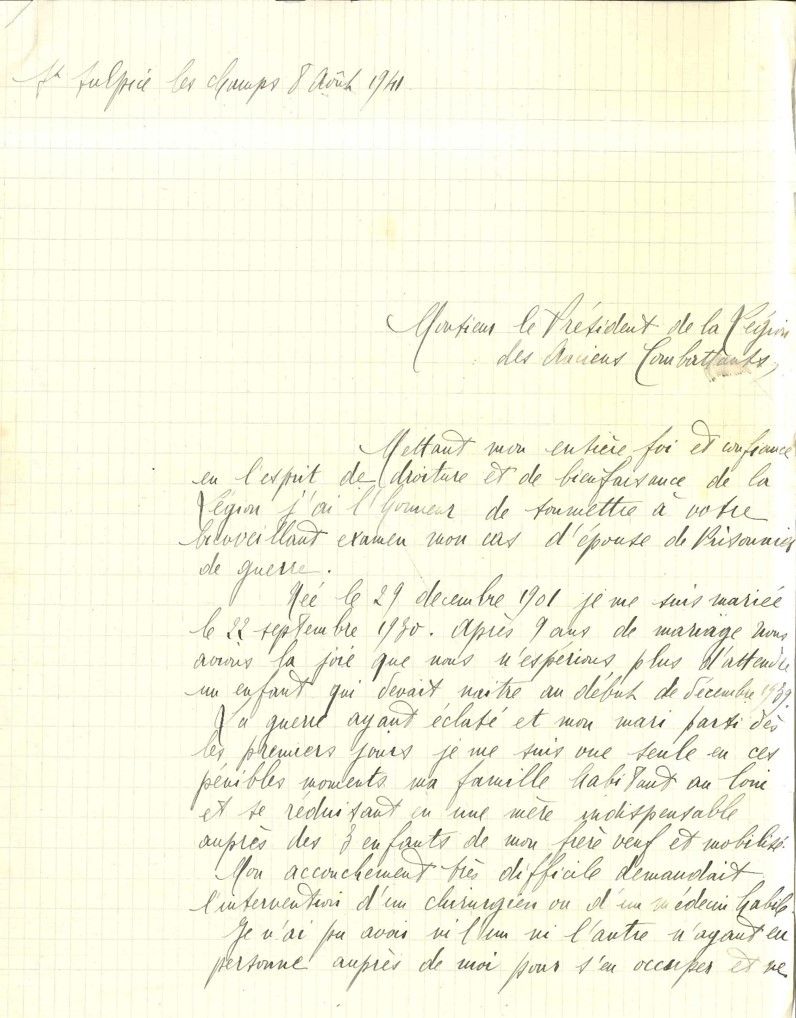 St Sulpice les Champs 8 Août 1941
Monsieur le Président de la Légion
des Anciens Combattants,
Mettant mon entière foi et confiance
en l'esprit de droiture et de bienfaisance de la
Légion j'ai l'honneur de soumettre à votre
bienveillant examen mon cas d'épouse de Prisonnier
de guerre.
Née le 29 decembre 1901 je me suis mariée
le 22 septembre 1930. Après 9 ans de mariage nous
avions la joie que nous n'espérions plus d'attendre
un enfant qui devait naitre au début de décembre 1939.
La guerre ayant éclaté et mon mari parti dès
les premiers jours je me suis vue seule en ces
pénibles moments ma famille habitant au loin
et se réduisant en une mère indispensable
auprès des 3 enfants de mon frère veuf et mobilisé.
Mon accouchement très difficile demandait
l'intervention d'un chirurgien ou d'un médecin habile.
Je n'ai pu avoir ni l'un ni l'autre n'ayant eu
personne auprès de moi pour s'en occuper et ne